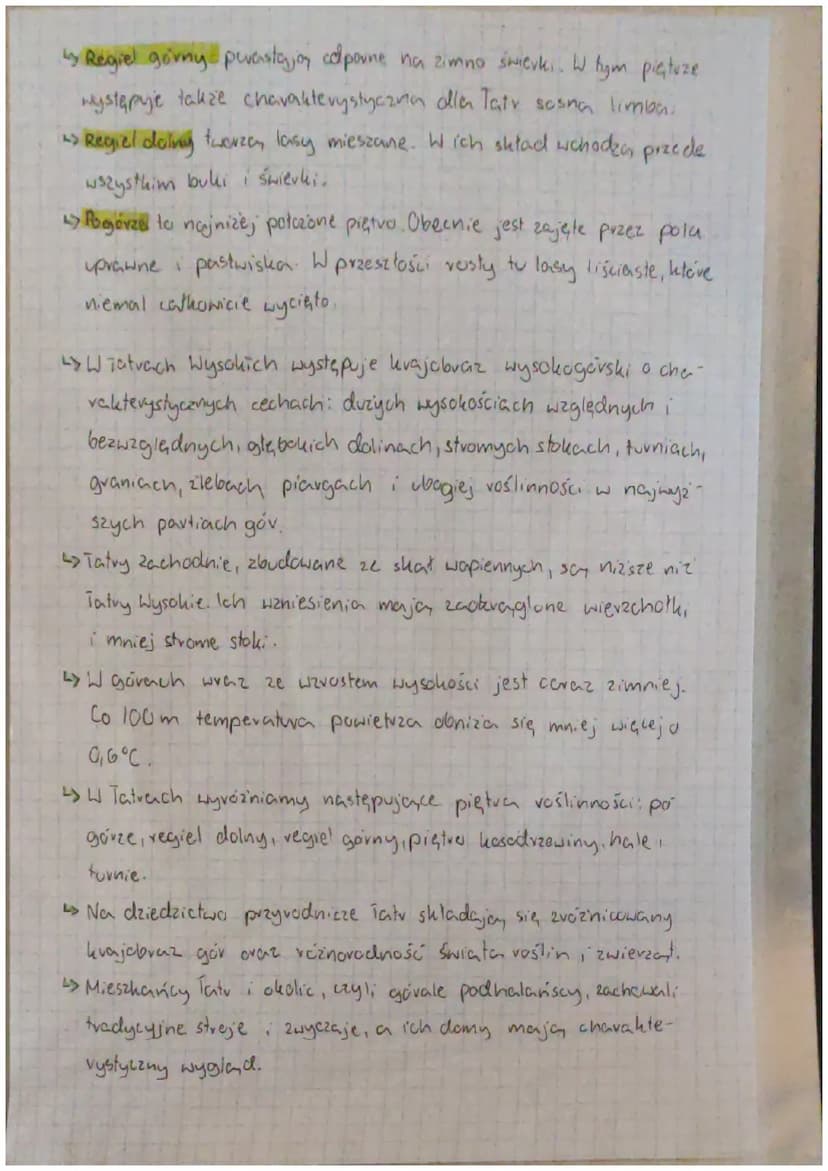 ↳ Regiel górny porastają odporne na zimno świerki. W tym piętrze
występuje także charakterystyczna dla Tatr sosna limba.
↳ Regiel dolny tworzą lasy mieszane. W ich skład wchodzą przede
wszystkim buki i świerki.
↳ Pogórze to najniżej położone piętro. Obecnie jest zajęte przez pola
uprawne i pastwiska. W przeszłości rosły tu lasy liściaste, które
niemal całkowicie wycięto.
↳ W Tatrach Wysokich występuje krajobraz wysokogórski o cha-
rakterystycznych cechach: dużych wysokościach względnych i
bezwzględnych, głębokich dolinach, stromych stokach, turniach,
graniach, żlebach, piargach i ubogiej roślinności w najwyż-
szych partiach gór.
↳ Tatry Zachodnie, zbudowane ze skał wapiennych, są niższe niż
Tatry Wysokie. Ich wzniesienia mają zaokrąglone wierzchołki,
i mniej strome stoki.
↳ W górach wraz ze wzrostem wysokości jest coraz zimniej.
Co 100 m temperatura powietrza obniża się mniej więcej o
0,6°C.
↳ W Tatrach wyróżniamy następujące piętra roślinności: po-
górze, regiel dolny, regiel górny, piętro kosodrzewiny, hale i
turnie.
↳ Na dziedzictwo przyrodnicze Tatr składają się zróżnicowany
krajobraz gór oraz różnorodność świata roślin i zwierząt.
↳ Mieszkańcy Tatr i okolic, czyli górale podhalańscy, zachowali
tradycyjne stroje i zwyczaje, a ich domy mają charakte-
rystyczny wygląd.